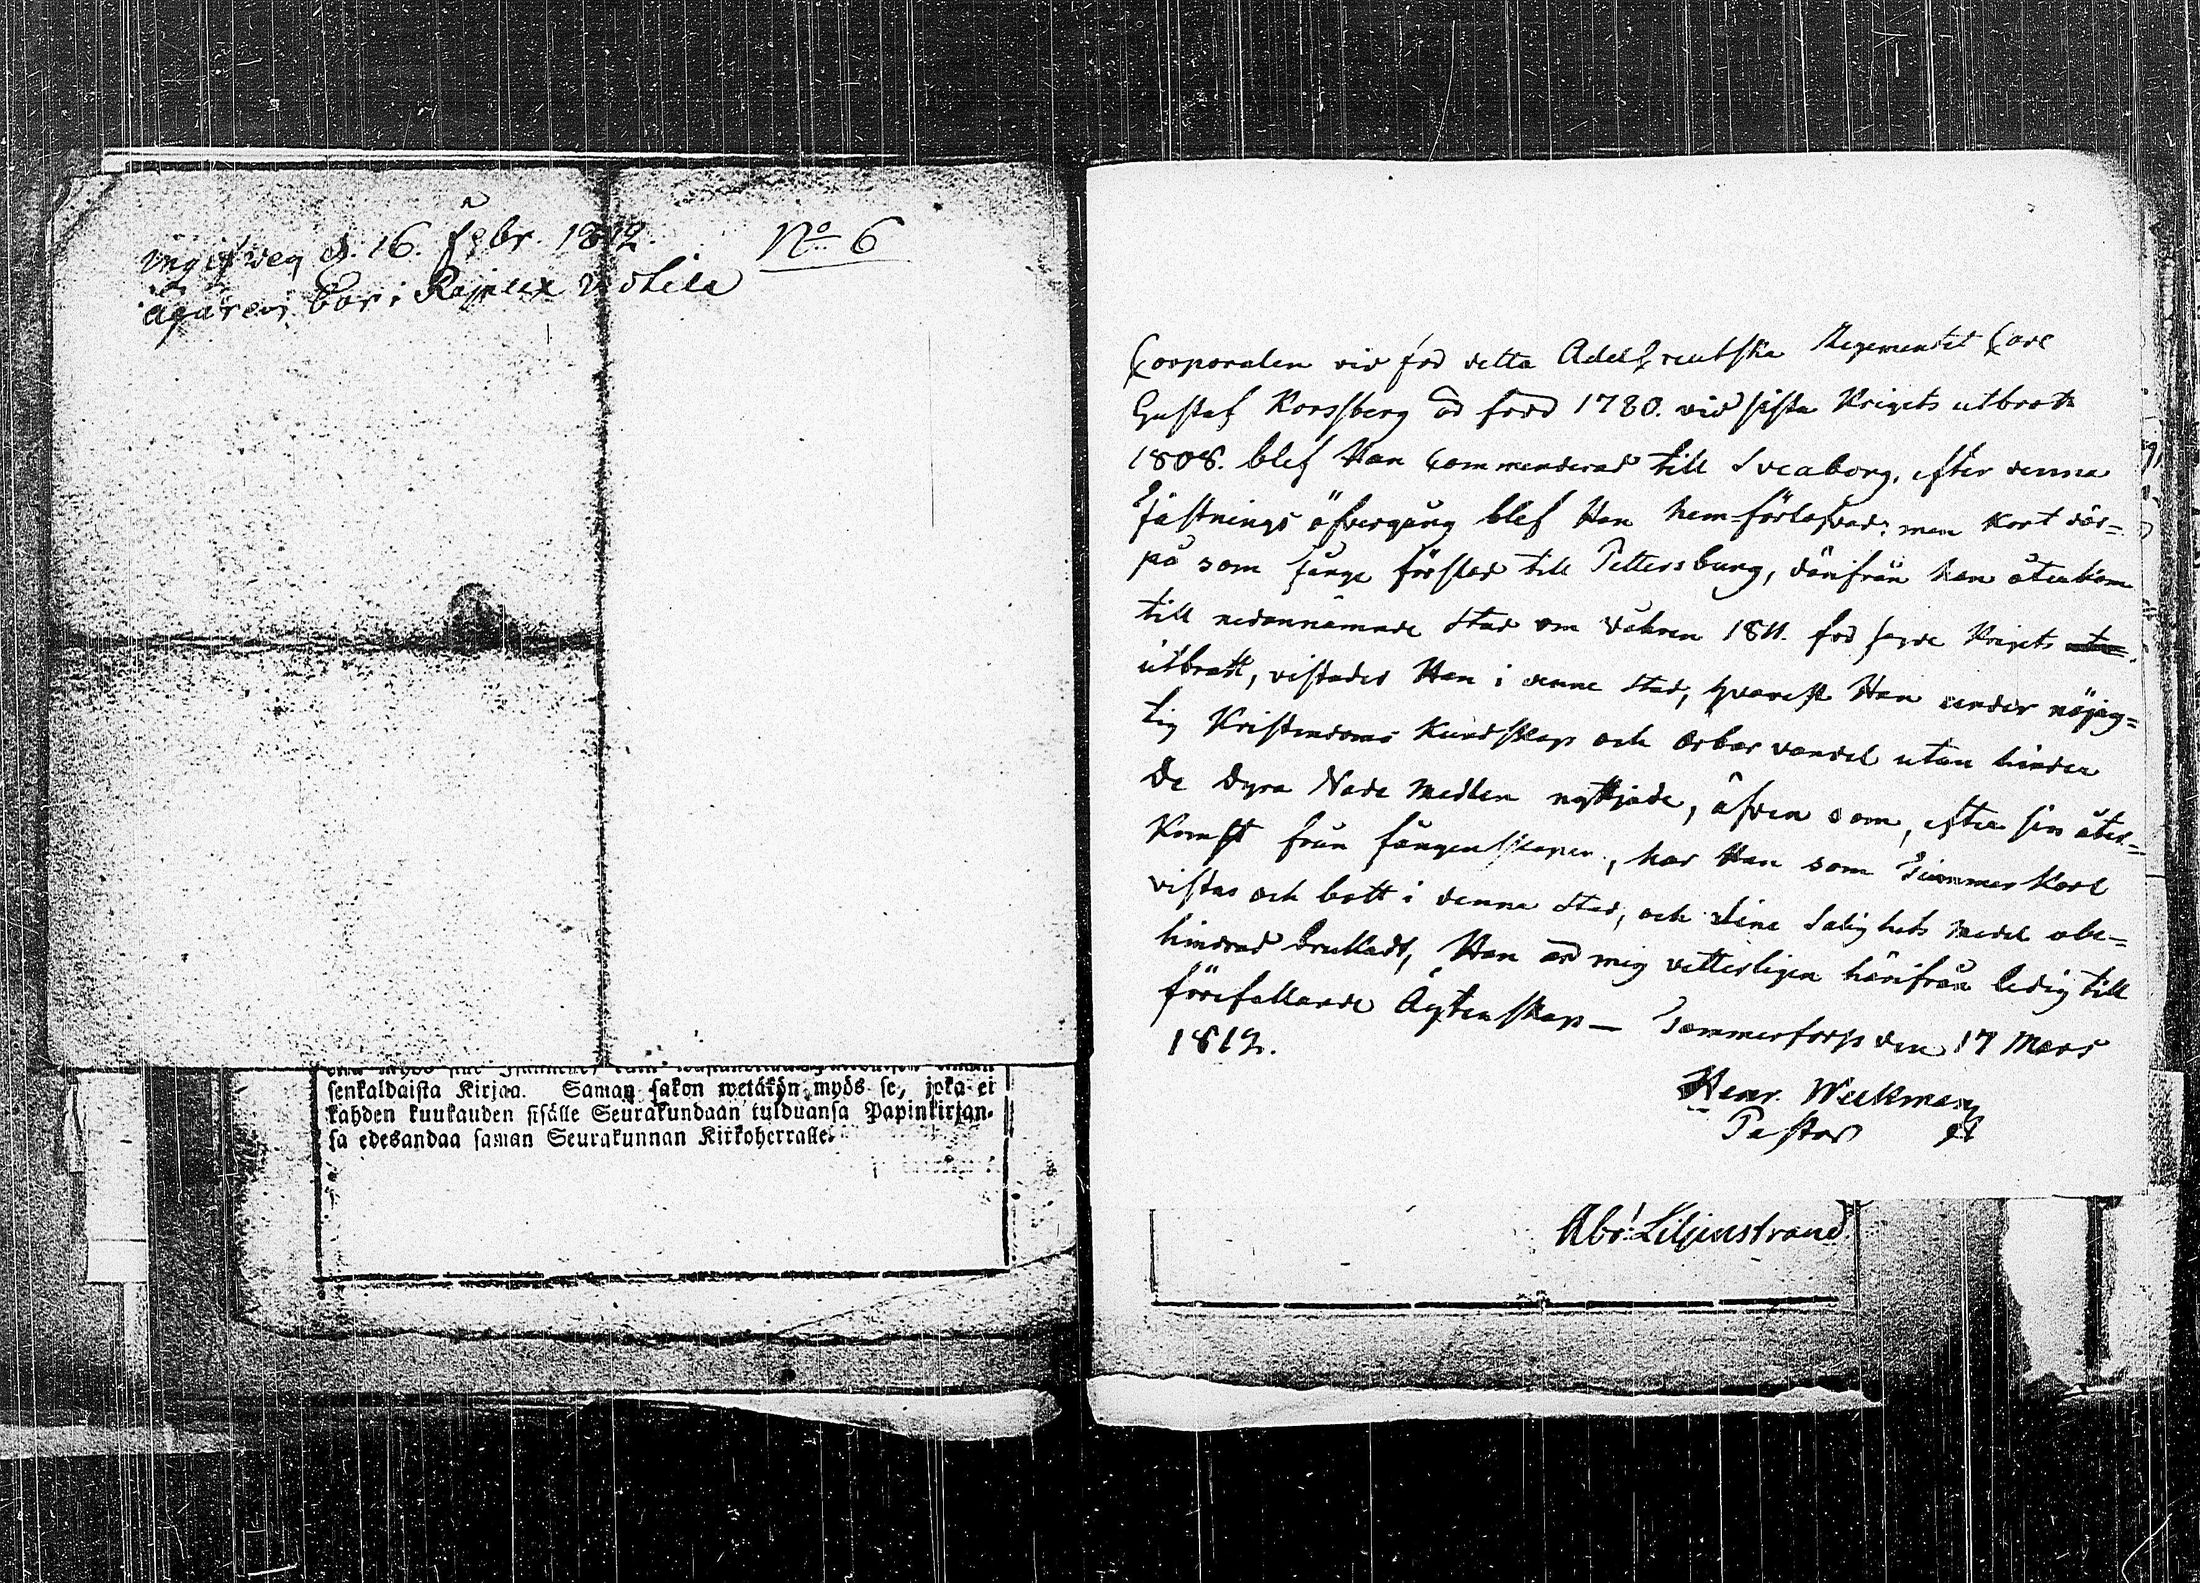 d. 16. Febr. 1812.
No 6
ägaren bor i
senkaldaista Kirjaa. Saman sakon wetäkön myös se, joka ei
kahden kuukauden sisälle Seurakundaan tulduansa Papinkirjan-
sa edesandaa saman Seurakunnan Kirkoherralle.
Corporalen vid för detta Adelkreutska Regementet Carl
Gustaf Korssberg är född 1780. vid sista Krigets utbrott
1808. blef Han Commenderad till Sveaborg, efter denna
Fästnings öfvergång blef Han hem-förlofvad: men kort där=
på som fånge förstad till Pettersburg, därifrån han återkom
till nedannämnde stad om Våhren 1811. för sagde Krigets
utbrott, vistades Han i denne stad, hvarest Han under nöjag=
tig Kristendoms Kundskap och ärbar vandel utan hinder
De dyra Nade medlen nyttjade, äfven som, efter sin åter=
komst från fångenskapen, har Han som Timmer Karl
vistas och bott i denna stad, och sine Salighets medel obe=
hindrad brukadt, Han är mig vetterligen härifrån ledig till
förefallande Ägtenskap — Tammerfors den 17 Mars
1812.
Henr. Weckman
Pastor
Abr: Liljenstrand.